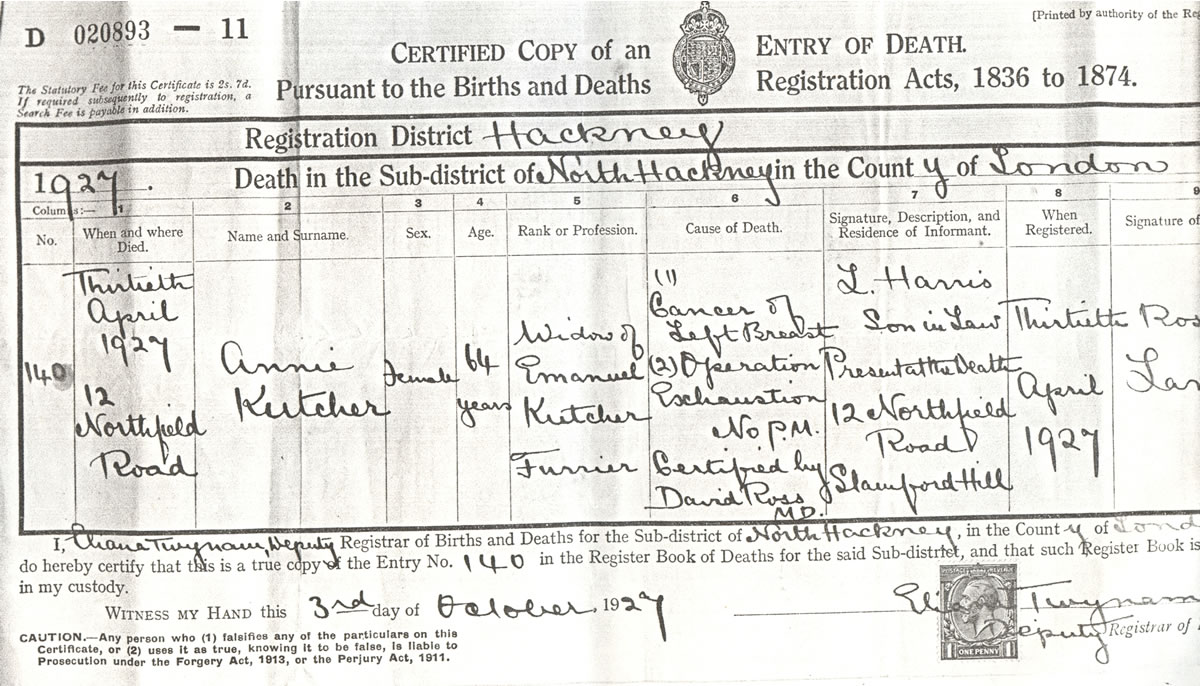 D 020893 — 11
[Printed by authority of the Re
CERTIFIED COPY of an ENTRY OF DEATH.
Pursuant to the Births and Deaths Registration Acts, 1836 to 1874.
The Statutory Fee for this Certificate is 2s. 7d.
If required subsequently to registration, a
Search Fee is payable in addition.
Registration District Hackney
1927. Death in the Sub-district of North Hackney in the County of London
Columns:— 1 2 3 4 5 6 7 8 9
No.
When and where
Died.
Name and Surname.
Sex.
Age.
Rank or Profession.
Cause of Death.
Signature, Description, and
Residence of Informant.
When
Registered.
Signature of
140
Thirtieth
April
1927
12
Northfield
Road
Annie
Kutcher
Female
64
years
Widow of
Emanuel
Kutcher
Furrier
(1)
Cancer of
Left Breast
(2) Operation
Exhaustion
No P.M.
Certified by
David Ross
M.D.
L. Harris
Son in Law
Present at the Death
12 Northfield
Road
Stamford Hill
Thirtieth
April
1927
I, Twynam, Deputy Registrar of Births and Deaths for the Sub-district of North Hackney, in the County of Lond
do hereby certify that this is a true copy of the Entry No. 140 in the Register Book of Deaths for the said Sub-district, and that such Register Book is
in my custody.
WITNESS MY HAND this 3rd day of October, 1927
Twynam
Deputy Registrar of
POSTAGE REVENUE
ONE PENNY
CAUTION.—Any person who (1) falsifies any of the particulars on this
Certificate, or (2) uses it as true, knowing it to be false, is liable to
Prosecution under the Forgery Act, 1913, or the Perjury Act, 1911.